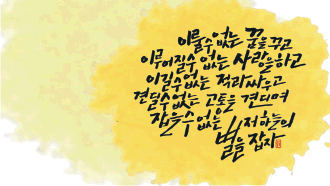 이룰수없는 꿈을꾸고
이루어질수 없는 사랑을하고
이길수없는 적과싸우고
견딜수없는 고통을 견디며
잡을수없는 저하늘의
별을 잡자